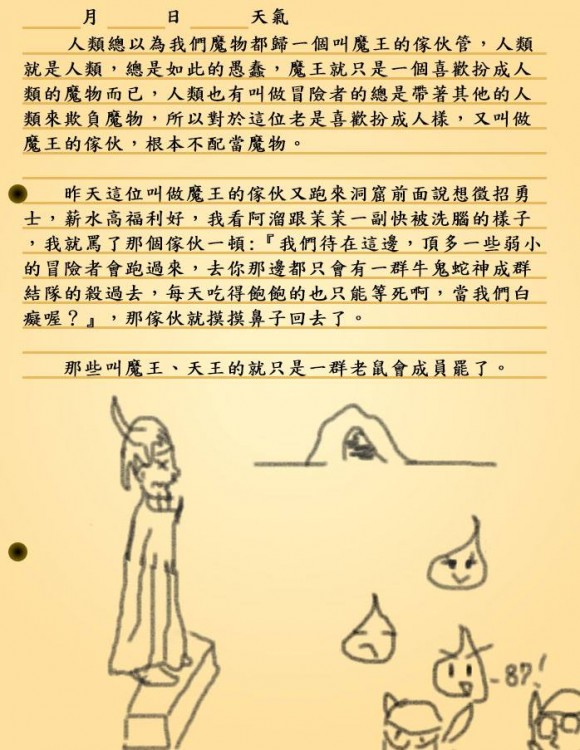 月 日 天氣
人類總以為我們魔物都歸一個叫魔王的傢伙管，人類
就是人類，總是如此的愚蠢，魔王就只是一個喜歡扮成人
類的魔物而已，人類也有叫做冒險者的總是帶著其他的人
類來欺負魔物，所以對於這位老是喜歡扮成人樣，又叫做
魔王的傢伙，根本不配當魔物。
昨天這位叫做魔王的傢伙又跑來洞窟前面說想徵招勇
士，薪水高福利好，我看阿溜跟茉茉一副快被洗腦的樣子
，我就罵了那個傢伙一頓:『我們待在這邊，頂多一些弱小
的冒險者會跑過來，去你那邊都只會有一群牛鬼蛇神成群
結隊的殺過去，每天吃得飽飽的也只能等死啊，當我們白
癡喔？』，那傢伙就摸摸鼻子回去了。
那些叫魔王、天王的就只是一群老鼠會成員罷了。
-87!